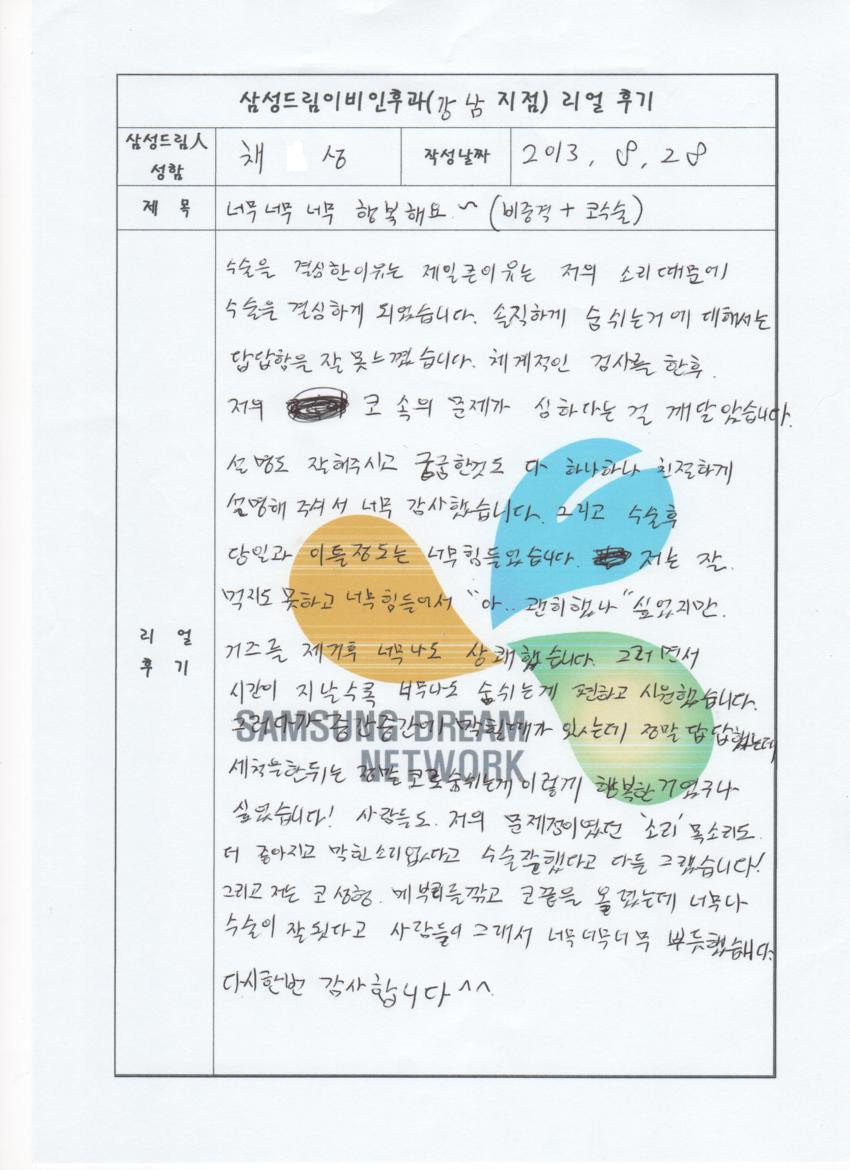 삼성드림이비인후과(강남 지점) 리얼 후기
삼성드림人 성함
채 성
작성날짜
2013, 8, 28
제 목
너무너무 너무 행복해요~ (비중격 + 코수술)
리 얼 후 기
수술을 결심한이유는 제일큰이유는 저의 소리때문에
수술을 결심하게 되었습니다. 솔직하게 숨쉬는거에 대해서는
답답함을 잘 못느꼈습니다. 체계적인 검사를 한후.
저의 코 속의 문제가 심하다는 걸 깨달았습니다.
설명도 잘해주시고 궁굼한것도 다 하나하나 친절하게
설명해 주셔서 너무 감사했습니다. 그리고 수술후
당일과 이틀정도는 너무힘들었습니다. 저는 잘.
먹지도 못하고 너무힘들어서 "아.. 괜히했나" 싶었지만.
거즈를 제거후 너무나도 상쾌했습니다. 그러면서
시간이 지날수록 너무나도 숨쉬는게 편하고 시원했습니다.
그러다가 중간중간에 막힐때가 있는데 정말답답했는데
세척을한뒤는 정말 코로숨쉬는게 이렇게 행복한거였구나
싶었습니다! 사람들도. 저의 문제점이였던 '소리' 목소리도.
더 좋아지고 막힌소리없다고 수술잘했다고 다들 그랬습니다!
그리고 저는 코성형. 메부리를깎고 코끝을 올렸는데 너무나
수술이 잘됬다고 사람들이 그래서 너무너무너무 뿌듯했습니다.
다시한번 감사합니다 ^^
SAMSUNG DREAM
NETWORK